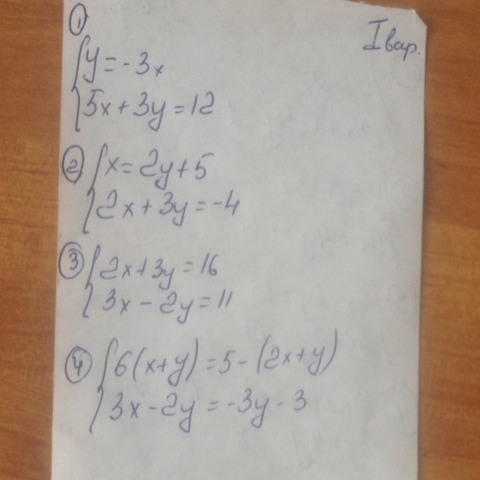 I вар.
① { y = -3x
5x + 3y = 12
② { x = 2y + 5
2x + 3y = -4
③ { 2x + 3y = 16
3x - 2y = 11
④ { 6(x + y) = 5 - (2x + y)
3x - 2y = -3y - 3